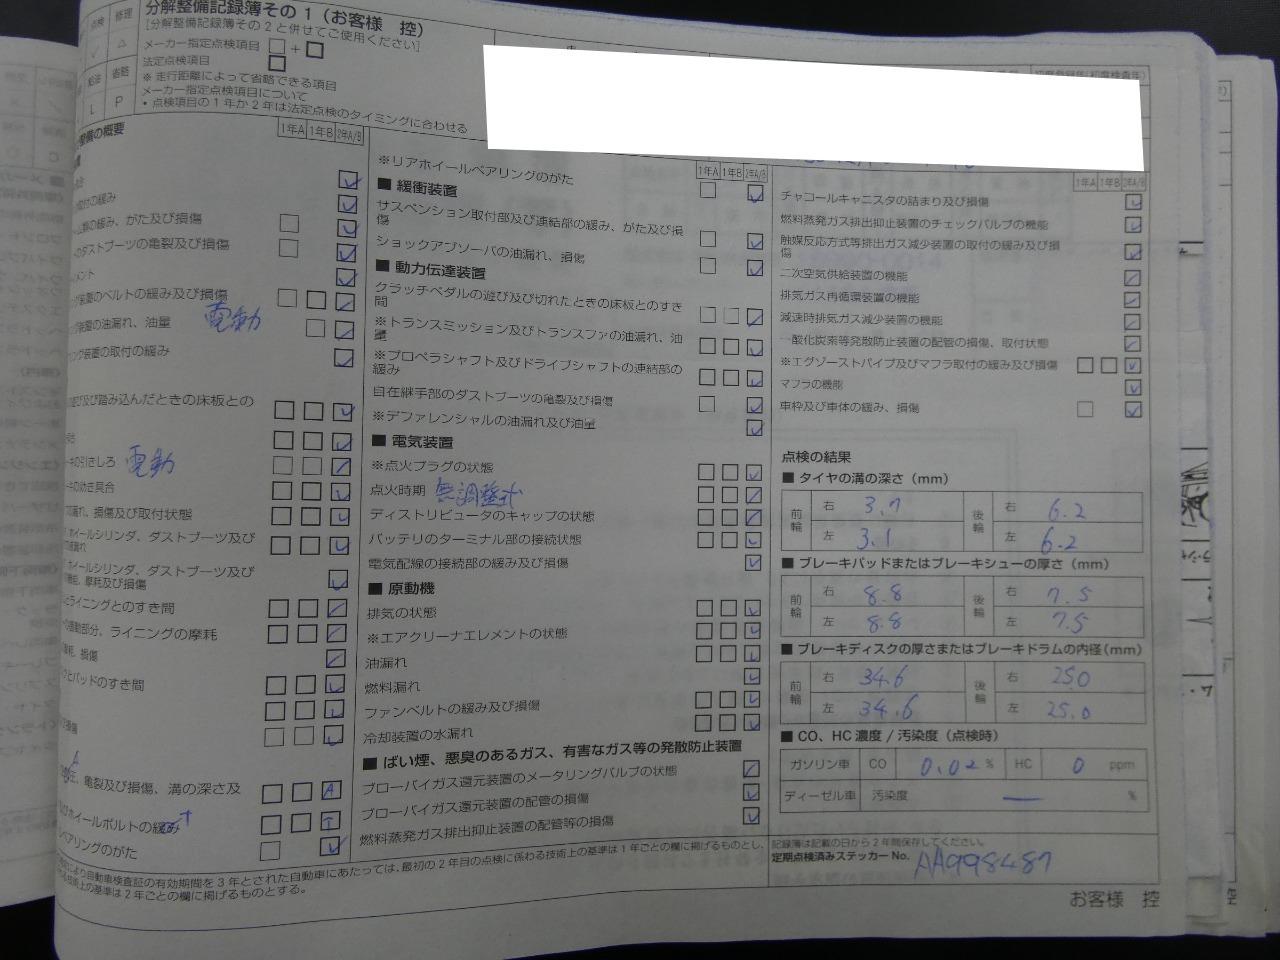 点検
修理
△
給油
省略
L
P
分解整備記録簿その1(お客様 控)
[分解整備記録簿その2と併せてご使用ください]
メーカー指定点検項目 □+□
法定点検項目 □
※ 走行距離によって省略できる項目
メーカー指定点検項目について
・点検項目の1年か2年は法定点検のタイミングに合わせる
整備の概要
1年A 1年B 2年A/B
取付の緩み
の緩み、がた及び損傷
のダストブーツの亀裂及び損傷
メント
装置のベルトの緩み及び損傷
電動
装置の油漏れ、油量
装置の取付の緩み
及び踏み込んだときの床板との
キの引きしろ 電動
キの効き具合
漏れ、損傷及び取付状態
ホイールシリンダ、ダストブーツ及び
漏れ
ホイールシリンダ、ダストブーツ及び
機能、摩耗及び損傷
とライニングとのすき間
の摺動部分、ライニングの摩耗
摩耗、損傷
とパッドのすき間
損傷
A
圧、亀裂及び損傷、溝の深さ及 A
及びホイールボルトの緩み T T
ベアリングのがた
1年A 1年B 2年A/B
※リアホイールベアリングのがた
■ 緩衝装置
サスペンション取付部及び連結部の緩み、がた及び損
傷
ショックアブソーバの油漏れ、損傷
■ 動力伝達装置
クラッチペダルの遊び及び切れたときの床板とのすき
間
※トランスミッション及びトランスファの油漏れ、油
量
※プロペラシャフト及びドライブシャフトの連結部の
緩み
自在継手部のダストブーツの亀裂及び損傷
※デファレンシャルの油漏れ及び油量
■ 電気装置
※点火プラグの状態
点火時期 無調整式
ディストリビュータのキャップの状態
バッテリのターミナル部の接続状態
電気配線の接続部の緩み及び損傷
■ 原動機
排気の状態
※エアクリーナエレメントの状態
油漏れ
燃料漏れ
ファンベルトの緩み及び損傷
冷却装置の水漏れ
■ ばい煙、悪臭のあるガス、有害なガス等の発散防止装置
ブローバイガス還元装置のメータリングバルブの状態
ブローバイガス還元装置の配管の損傷
燃料蒸発ガス排出抑止装置の配管等の損傷
1年A 1年B 2年A/B
チャコールキャニスタの詰まり及び損傷
燃料蒸発ガス排出抑止装置のチェックバルブの機能
触媒反応方式等排出ガス減少装置の取付の緩み及び損
傷
二次空気供給装置の機能
排気ガス再循環装置の機能
減速時排気ガス減少装置の機能
一酸化炭素等発散防止装置の配管の損傷、取付状態
※エグゾーストパイプ及びマフラ取付の緩み及び損傷
マフラの機能
車枠及び車体の緩み、損傷
点検の結果
■ タイヤの溝の深さ(mm)
前輪 右 3.7 後輪 右 6.2
左 3.1 左 6.2
■ ブレーキパッドまたはブレーキシューの厚さ(mm)
前輪 右 8.8 後輪 右 7.5
左 8.8 左 7.5
■ ブレーキディスクの厚さまたはブレーキドラムの内径(mm)
前輪 右 34.6 後輪 右 25.0
左 34.6 左 25.0
■ CO、HC 濃度 / 汚染度(点検時)
ガソリン車 CO 0.02 % HC 0 ppm
ディーゼル車 汚染度 ― %
により自動車検査証の有効期間を3年とされた自動車にあたっては、最初の2年目の点検に係わる技術上の基準は1年ごとの欄に掲げるものとし、
技術上の基準は2年ごとの欄に掲げるものとする。
記録簿は記載の日から2年間保存してください。
定期点検済みステッカー No. AA998487
お客様 控